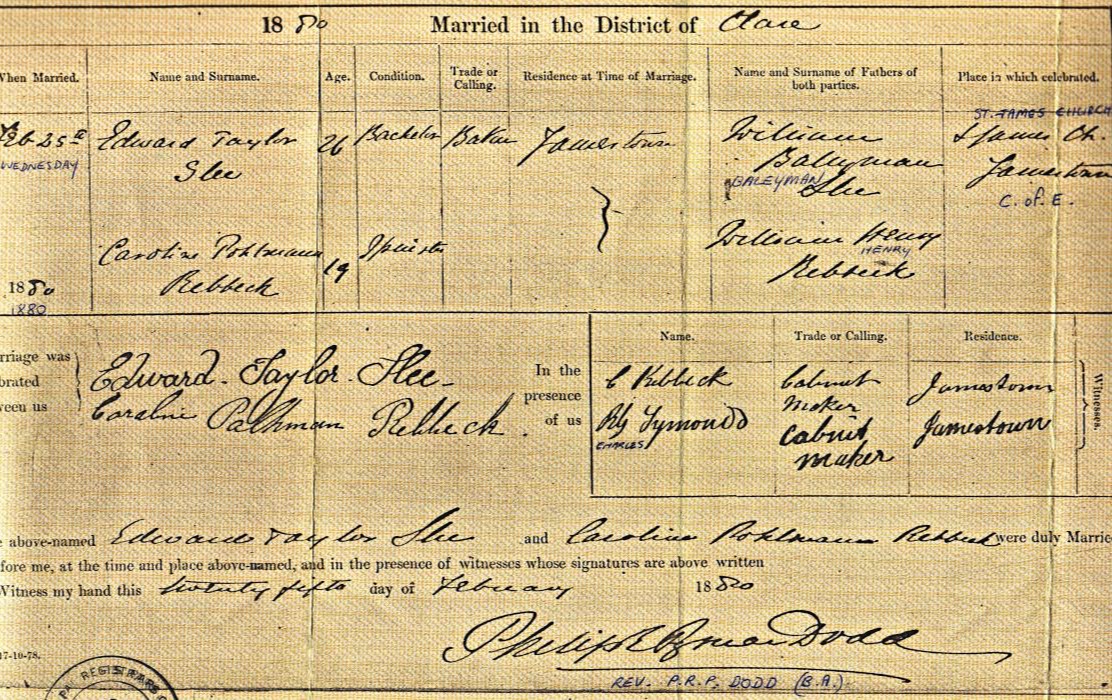 18 80 Married in the District of Clare
When Married. Name and Surname. Age. Condition. Trade or Calling. Residence at Time of Marriage. Name and Surname of Fathers of both parties. Place in which celebrated.
ST. JAMES CHURCH
Feb 25th Edward Taylor 26 Bachelor Baker Jamestown William St James Ch.
WEDNESDAY Slee Baleyman Jamestown
BALEYMAN Slee C. of E.
Caroline Pohlmann 19 Spinster William Henry
HENRY
1880 Rebbeck Rebbeck
1880
Name. Trade or Calling. Residence.
rriage was Edward Taylor Slee In the C Rebbeck Cabinet Jamestown
brated presence maker
ween us Caroline Pohlmann Rebbeck of us Symonds Cabinet Jamestown Witnesses.
CHARLES maker
e above-named Edward Taylor Slee and Caroline Pohlmann Rebbeck were duly Marrie
fore me, at the time and place above-named, and in the presence of witnesses whose signatures are above written
Witness my hand this twenty fifth day of February 1880
Philip Dodd
17-10-78.
REV. P.R.P. DODD (B.A.)
REGISTRAR